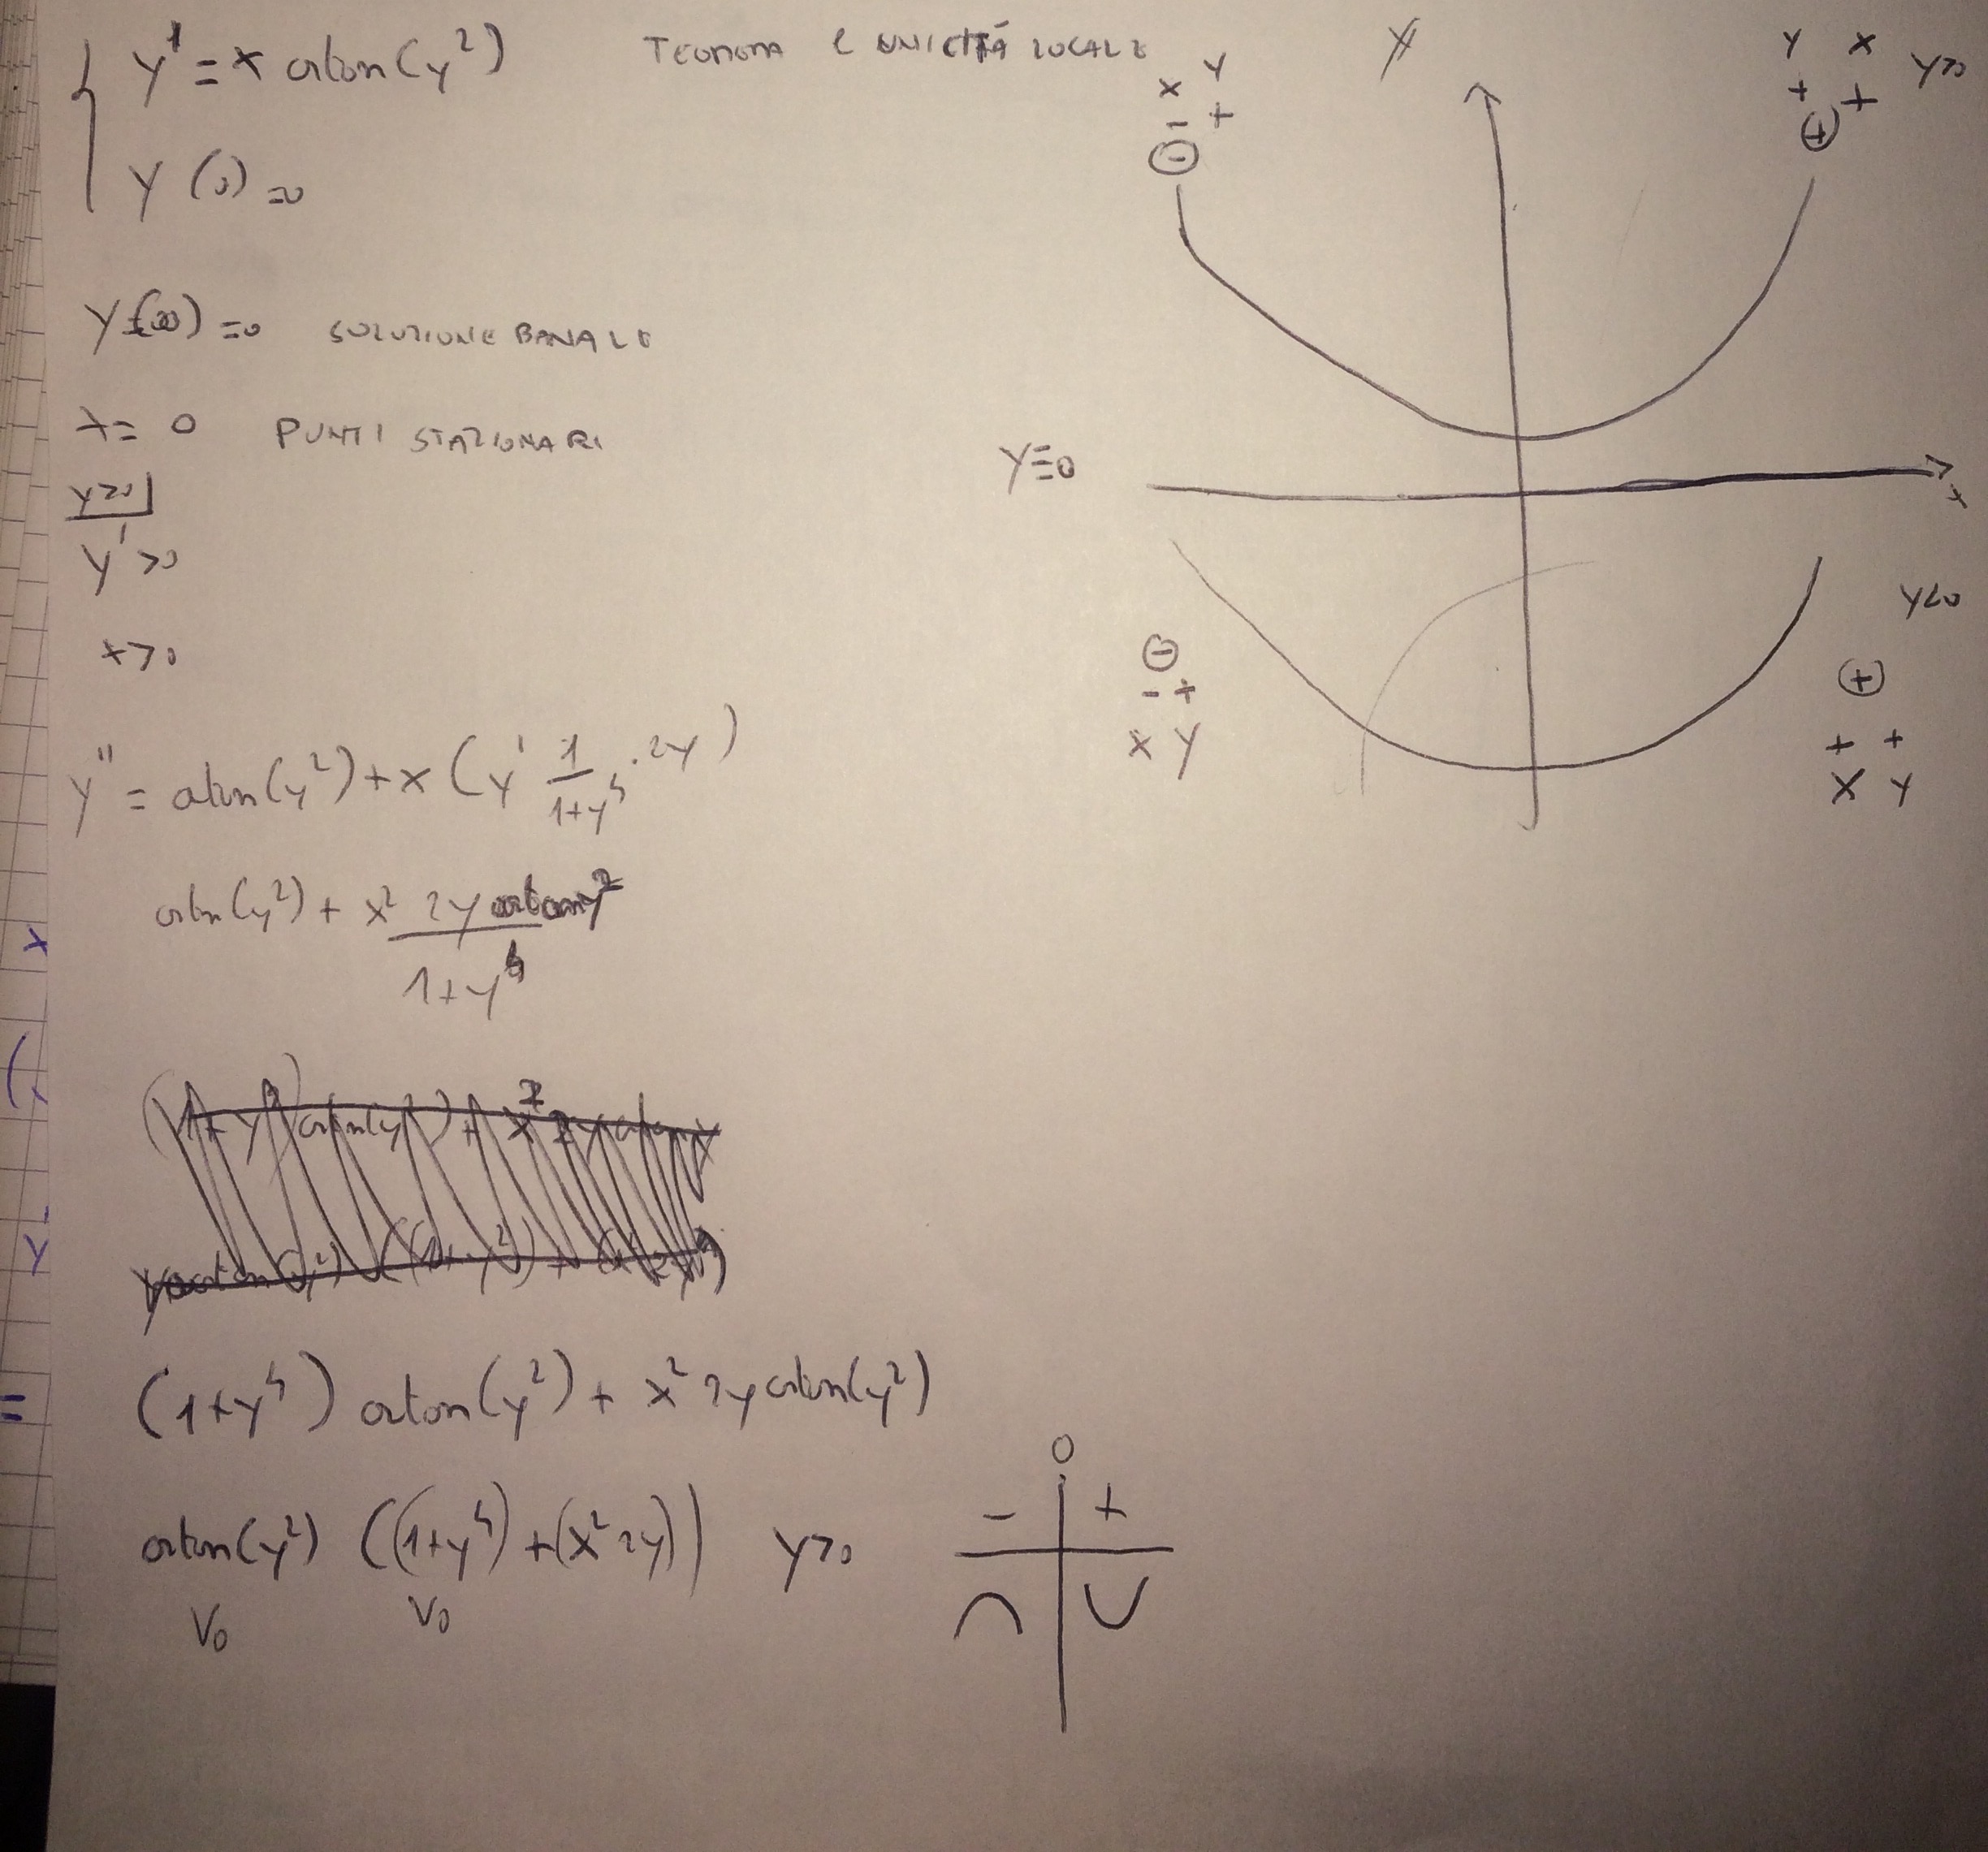 y' = x arctan(y²)
TEOREMA E UNICITÁ LOCALE
y(0) = 0
y(x) = 0 SOLUZIONE BANALE
x = 0 PUNTI STAZIONARI
y>0
y' > 0
x > 0
y'' = atan(y²) + x (y' 1/(1+y⁴) · 2y)
artan(y²) + x² 2y artan y² / (1+y⁴)
(1+y⁴) artan(y²) + x² 2y artan(y²)
artan(y²) ((1+y⁴) + (x² 2y)) y>0
V0 V0
0
- +
y
x y
- +
⊖
y x y>0
+ +
⊕
y≡0
x
y<0
⊖
- +
x y
⊕
+ +
x y
x
(
y
=